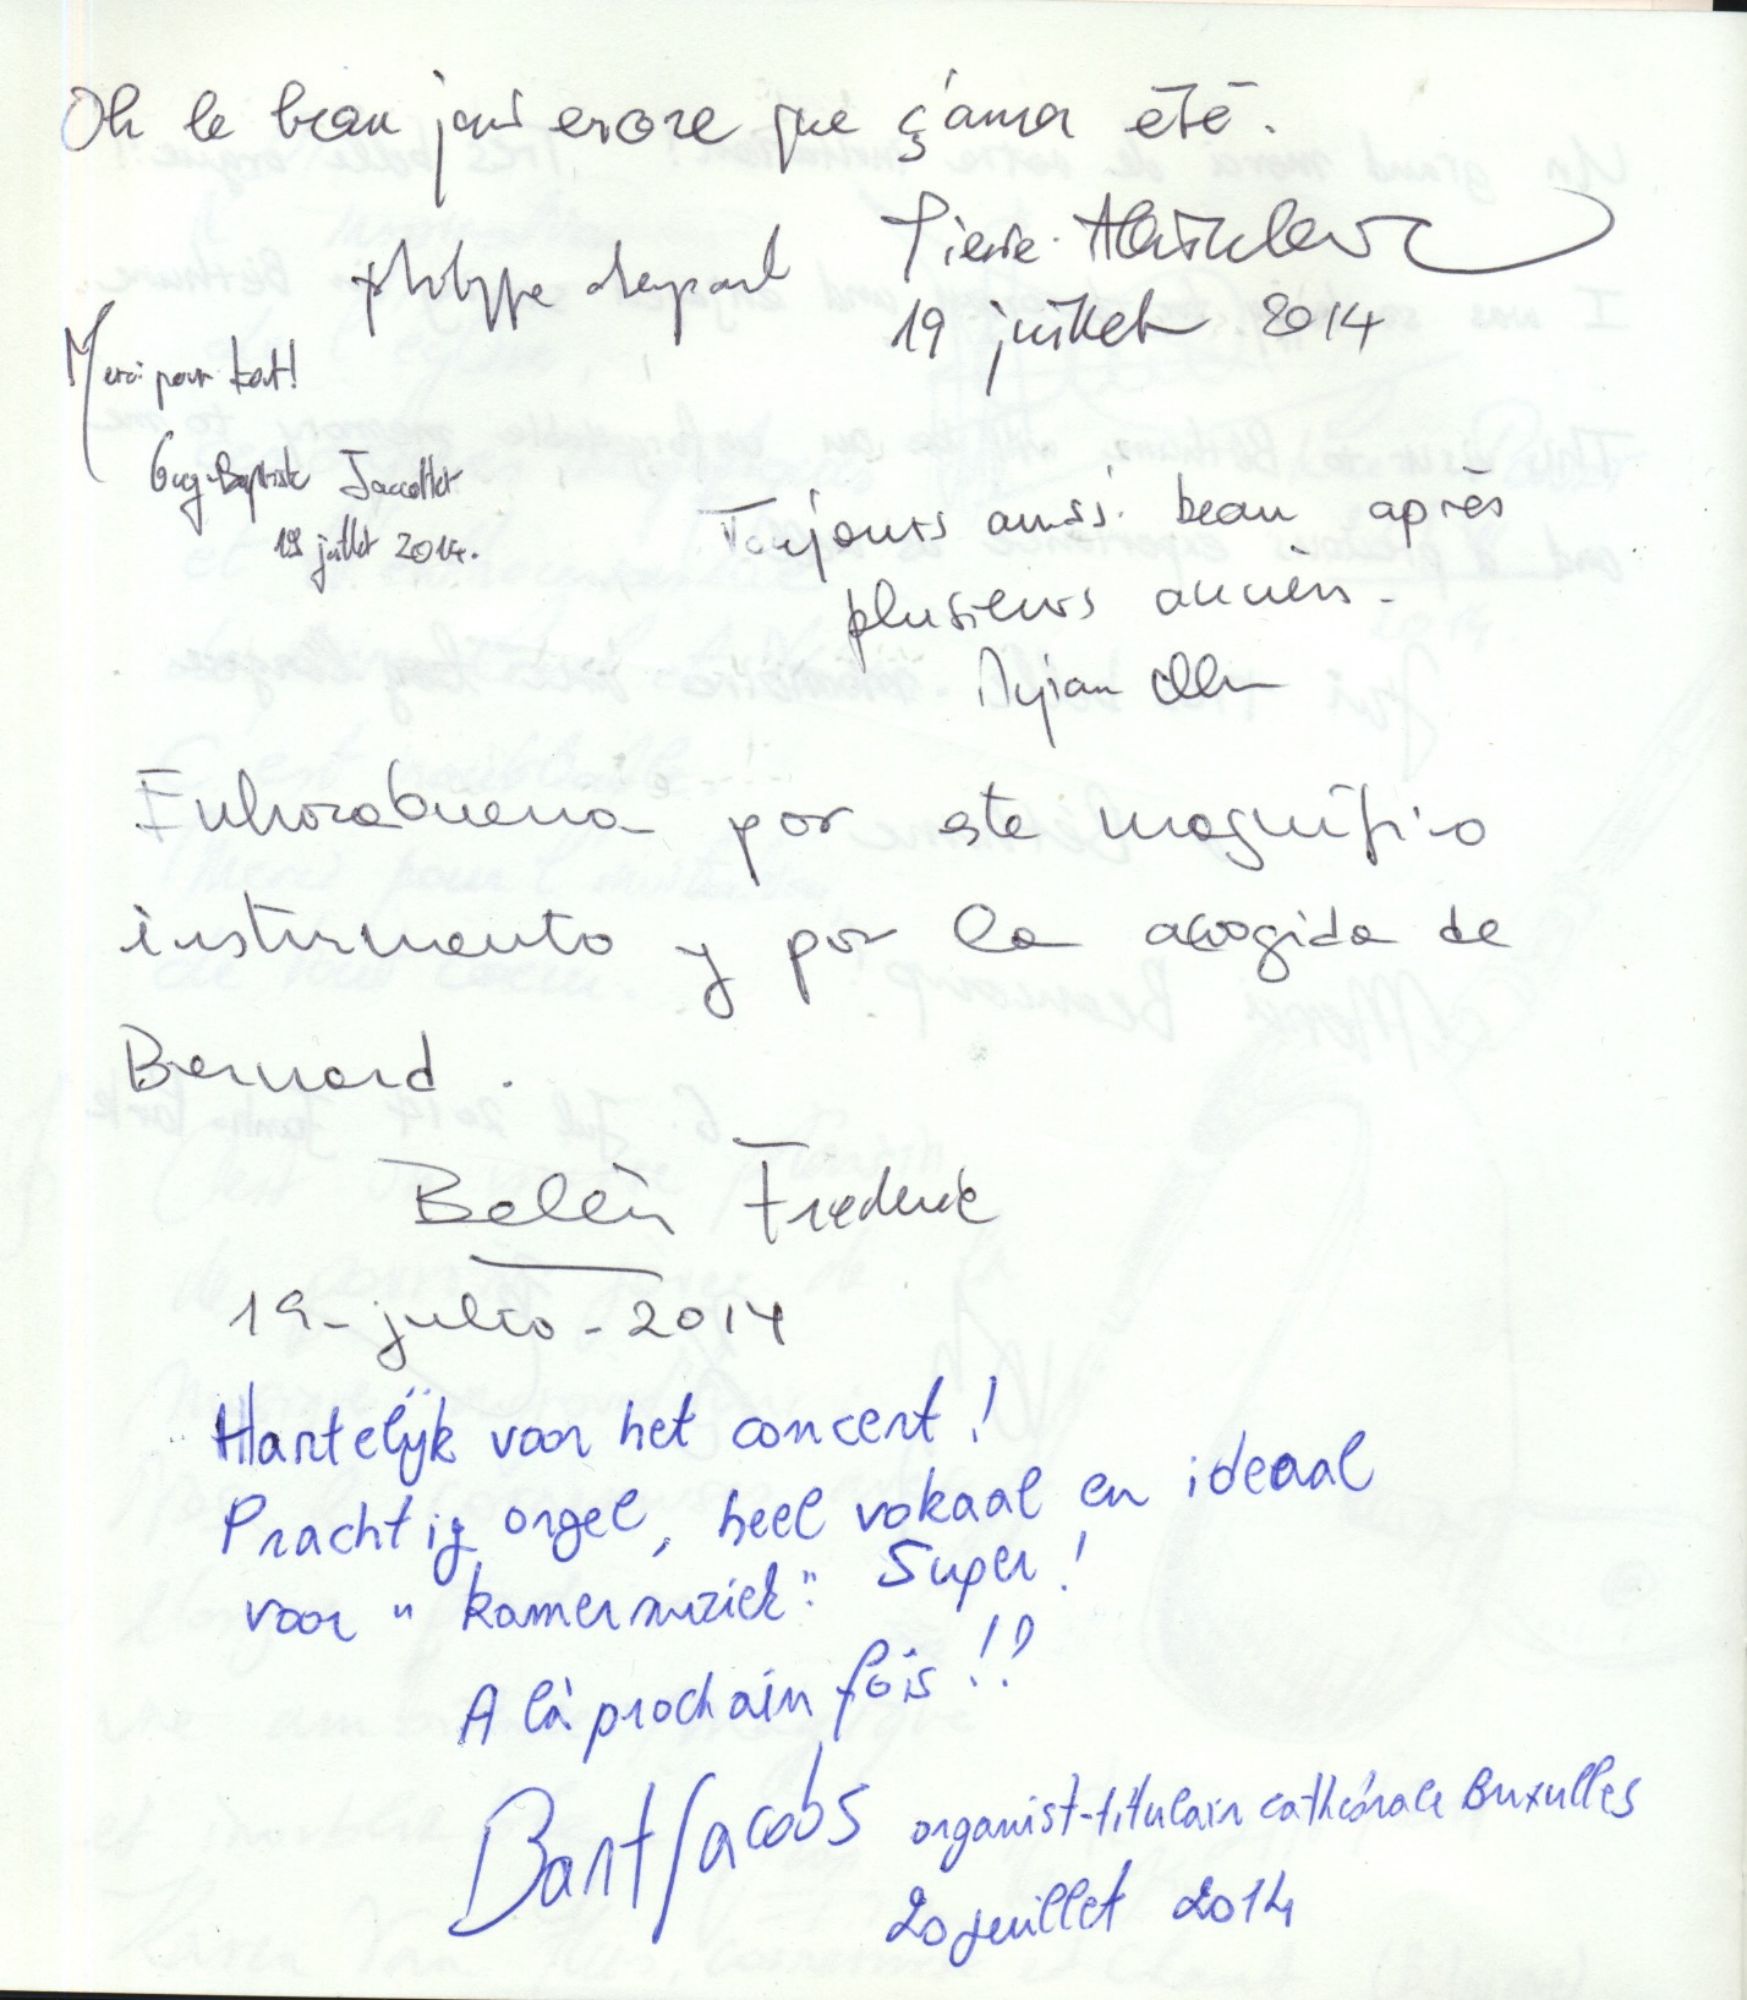 Oh le beau jour encore que ç'aura été.
Pierre
Philippe
19 juillet 2014
Merci pour tout!
Guy-Baptiste Jaccottet
19 juillet 2014.
Toujours aussi beau après
plusieurs années.
Enhorabuena por este magnífico
instrumento y por la acogida de
Bernard.
Belén Frederick
19-julio-2014
Hartelÿk voor het concert!
Prachtig orgel, heel vokaal en ideaal
voor "kamermuziek". Super!
A là prochain fois!!
Bart Jacobs organist-titulair cathédrale Bruxulles
20 juillet 2014